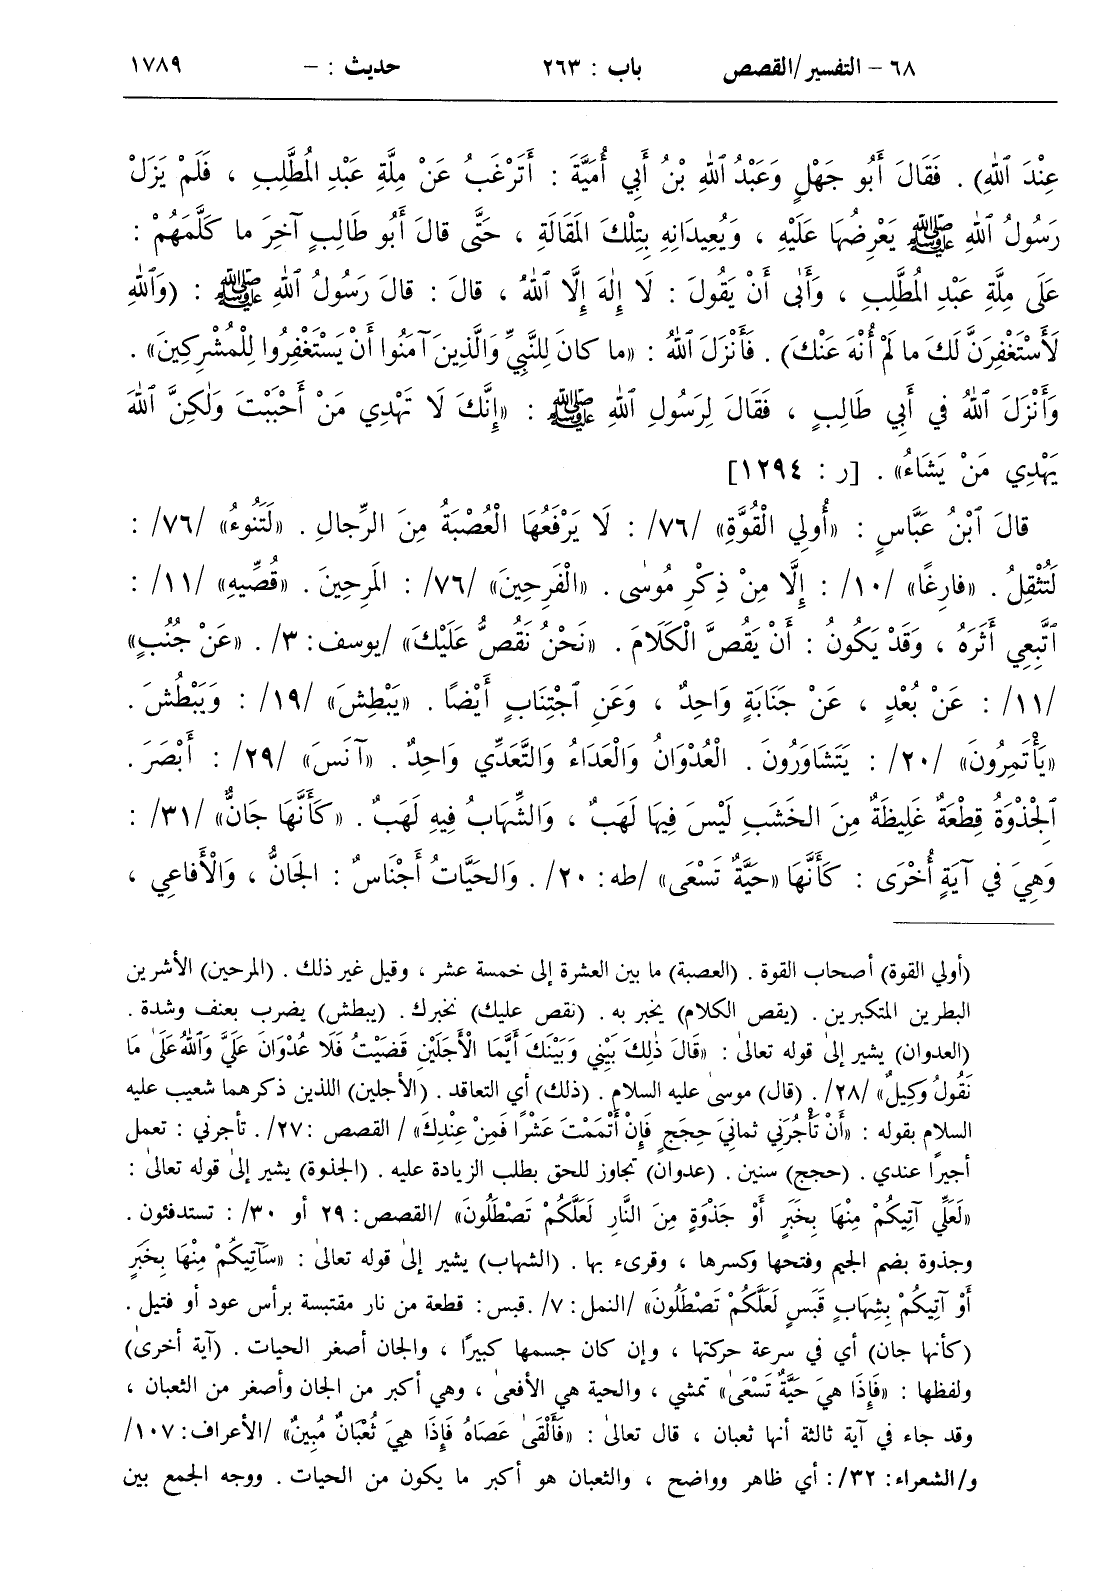 ٦٨ – التفسير/القصص باب : ٢٦٣ حديث : – ١٧٨٩
عِنْدَ ٱللهِ) . فَقَالَ أَبُو جَهْلٍ وَعَبْدُ ٱللهِ بْنُ أَبِي أُمَيَّةَ : أَتَرْغَبُ عَنْ مِلَّةِ عَبْدِ المُطَّلِبِ ، فَلَمْ يَزَلْ
رَسُولُ ٱللهِ ﷺ يَعْرِضُهَا عَلَيْهِ ، وَيُعِيدَانِهِ بِتِلْكَ المَقَالَةِ ، حَتَّى قالَ أَبُو طَالِبٍ آخِرَ ما كَلَّمَهُمْ :
عَلَى مِلَّةِ عَبْدِ المُطَّلِبِ ، وَأَبٰى أَنْ يَقُولَ : لَا إِلٰهَ إِلَّا ٱللهُ ، قالَ : قالَ رَسُولُ ٱللهِ ﷺ : (وَٱللهِ
لَأَسْتَغْفِرَنَّ لَكَ ما لَمْ أُنْهَ عَنْكَ) . فَأَنْزَلَ ٱللهُ : «ما كانَ لِلنَّبِيِّ وَالَّذِينَ آمَنُوا أَنْ يَسْتَغْفِرُوا لِلْمُشْرِكِينَ» .
وَأَنْزَلَ ٱللهُ في أَبِي طَالِبٍ ، فَقَالَ لِرَسُولِ ٱللهِ ﷺ : «إِنَّكَ لَا تَهْدِي مَنْ أَحْبَبْتَ وَلٰكِنَّ ٱللهَ
يَهْدِي مَنْ يَشَاءُ» . [ر : ١٢٩٤]
قالَ ٱبْنُ عَبَّاسٍ : «أُولِي الْقُوَّةِ» /٧٦/ : لَا يَرْفَعُهَا الْعُصْبَةُ مِنَ الرِّجالِ . «لَتَنُوءُ» /٧٦/ :
لَتُثْقِلُ . «فارِغًا» /١٠/ : إِلَّا مِنْ ذِكْرِ مُوسٰى . «الْفَرِحِينَ» /٧٦/ : المَرِحِينَ . «قُصِّيهِ» /١١/ :
ٱتَّبِعِي أَثَرَهُ ، وَقَدْ يَكُونُ : أَنْ يَقُصَّ الْكَلَامَ . «نَحْنُ نَقُصُّ عَلَيْكَ» /يوسف: ٣/ . «عَنْ جُنُبٍ»
/١١/ : عَنْ بُعْدٍ ، عَنْ جَنَابَةٍ وَاحِدٌ ، وَعَنِ ٱجْتِنَابٍ أَيْضًا . «يَبْطِشَ» /١٩/ : وَيَبْطُشَ .
«يَأْتَمِرُونَ» /٢٠/ : يَتَشَاوَرُونَ . الْعُدْوَانُ وَالْعَدَاءُ وَالتَّعَدِّي وَاحِدٌ . «آنَسَ» /٢٩/ : أَبْصَرَ .
ٱلْجِذْوَةُ قِطْعَةٌ غَلِيظَةٌ مِنَ الخَشَبِ لَيْسَ فِيهَا لَهَبٌ ، وَالشِّهَابُ فِيهِ لَهَبٌ . «كَأَنَّهَا جانٌّ» /٣١/ :
وَهِيَ في آيَةٍ أُخْرَى : كَأَنَّهَا «حَيَّةٌ تَسْعَى» /طه: ٢٠/ . وَالحَيَّاتُ أَجْنَاسٌ : الجَانُّ ، وَالْأَفاعِي ،
(أولي القوة) أصحاب القوة . (العصبة) ما بين العشرة إلى خمسة عشر ، وقيل غير ذلك . (المرحين) الأشرين
البطرين المتكبرين . (يقص الكلام) يخبر به . (نقص عليك) نخبرك . (يبطش) يضرب بعنف وشدة .
(العدوان) يشير إلىٰ قوله تعالىٰ : «قَالَ ذٰلِكَ بَيْنِي وَبَيْنَكَ أَيَّمَا الْأَجَلَيْنِ قَضَيْتُ فَلَا عُدْوَانَ عَلَيَّ وَٱللهُ عَلَىٰ مَا
نَقُولُ وَكِيلٌ» /٢٨/ . (قال) موسىٰ عليه السلام . (ذلك) أي التعاقد . (الأجلين) اللذين ذكرهما شعيب عليه
السلام بقوله : «أَنْ تَأْجُرَنِي ثمانِيَ حِجَجٍ فَإِنْ أَتْمَمْتَ عَشْرًا فَمِنْ عِنْدِكَ» / القصص :٢٧/ . تأجرني : تعمل
أجيرًا عندي . (حجج) سنين . (عدوان) تجاوز للحق بطلب الزيادة عليه . (الجذوة) يشير إلىٰ قوله تعالىٰ :
«لَعَلِّي آتِيكُمْ مِنْهَا بِخَبَرٍ أَوْ جَذْوَةٍ مِنَ النَّارِ لَعَلَّكُمْ تَصْطَلُونَ» /القصص: ٢٩ أو ٣٠/ : تستدفئون .
وجذوة بضم الجيم وفتحها وكسرها ، وقرىء بها . (الشهاب) يشير إلىٰ قوله تعالىٰ : «سَآتِيكُمْ مِنْهَا بِخَبَرٍ
أَوْ آتِيكُمْ بِشِهَابٍ قَبَسٍ لَعَلَّكُمْ تَصْطَلُونَ» /النمل: ٧/ . قبس: قطعة من نار مقتبسة برأس عود أو فتيل .
(كأنها جان) أي في سرعة حركتها ، وإن كان جسمها كبيرًا ، والجان أصغر الحيات . (آية أخرىٰ)
ولفظها : «فَإِذَا هِيَ حَيَّةٌ تَسْعَىٰ» تمشي ، والحية هي الأفعىٰ ، وهي أكبر من الجان وأصغر من الثعبان ،
وقد جاء في آية ثالثة أنها ثعبان ، قال تعالىٰ : «فَأَلْقَىٰ عَصَاهُ فَإِذَا هِيَ ثُعْبَانٌ مُبِينٌ» /الأعراف: ١٠٧/
و/الشعراء: ٣٢/: أي ظاهر وواضح ، والثعبان هو أكبر ما يكون من الحيات . ووجه الجمع بين